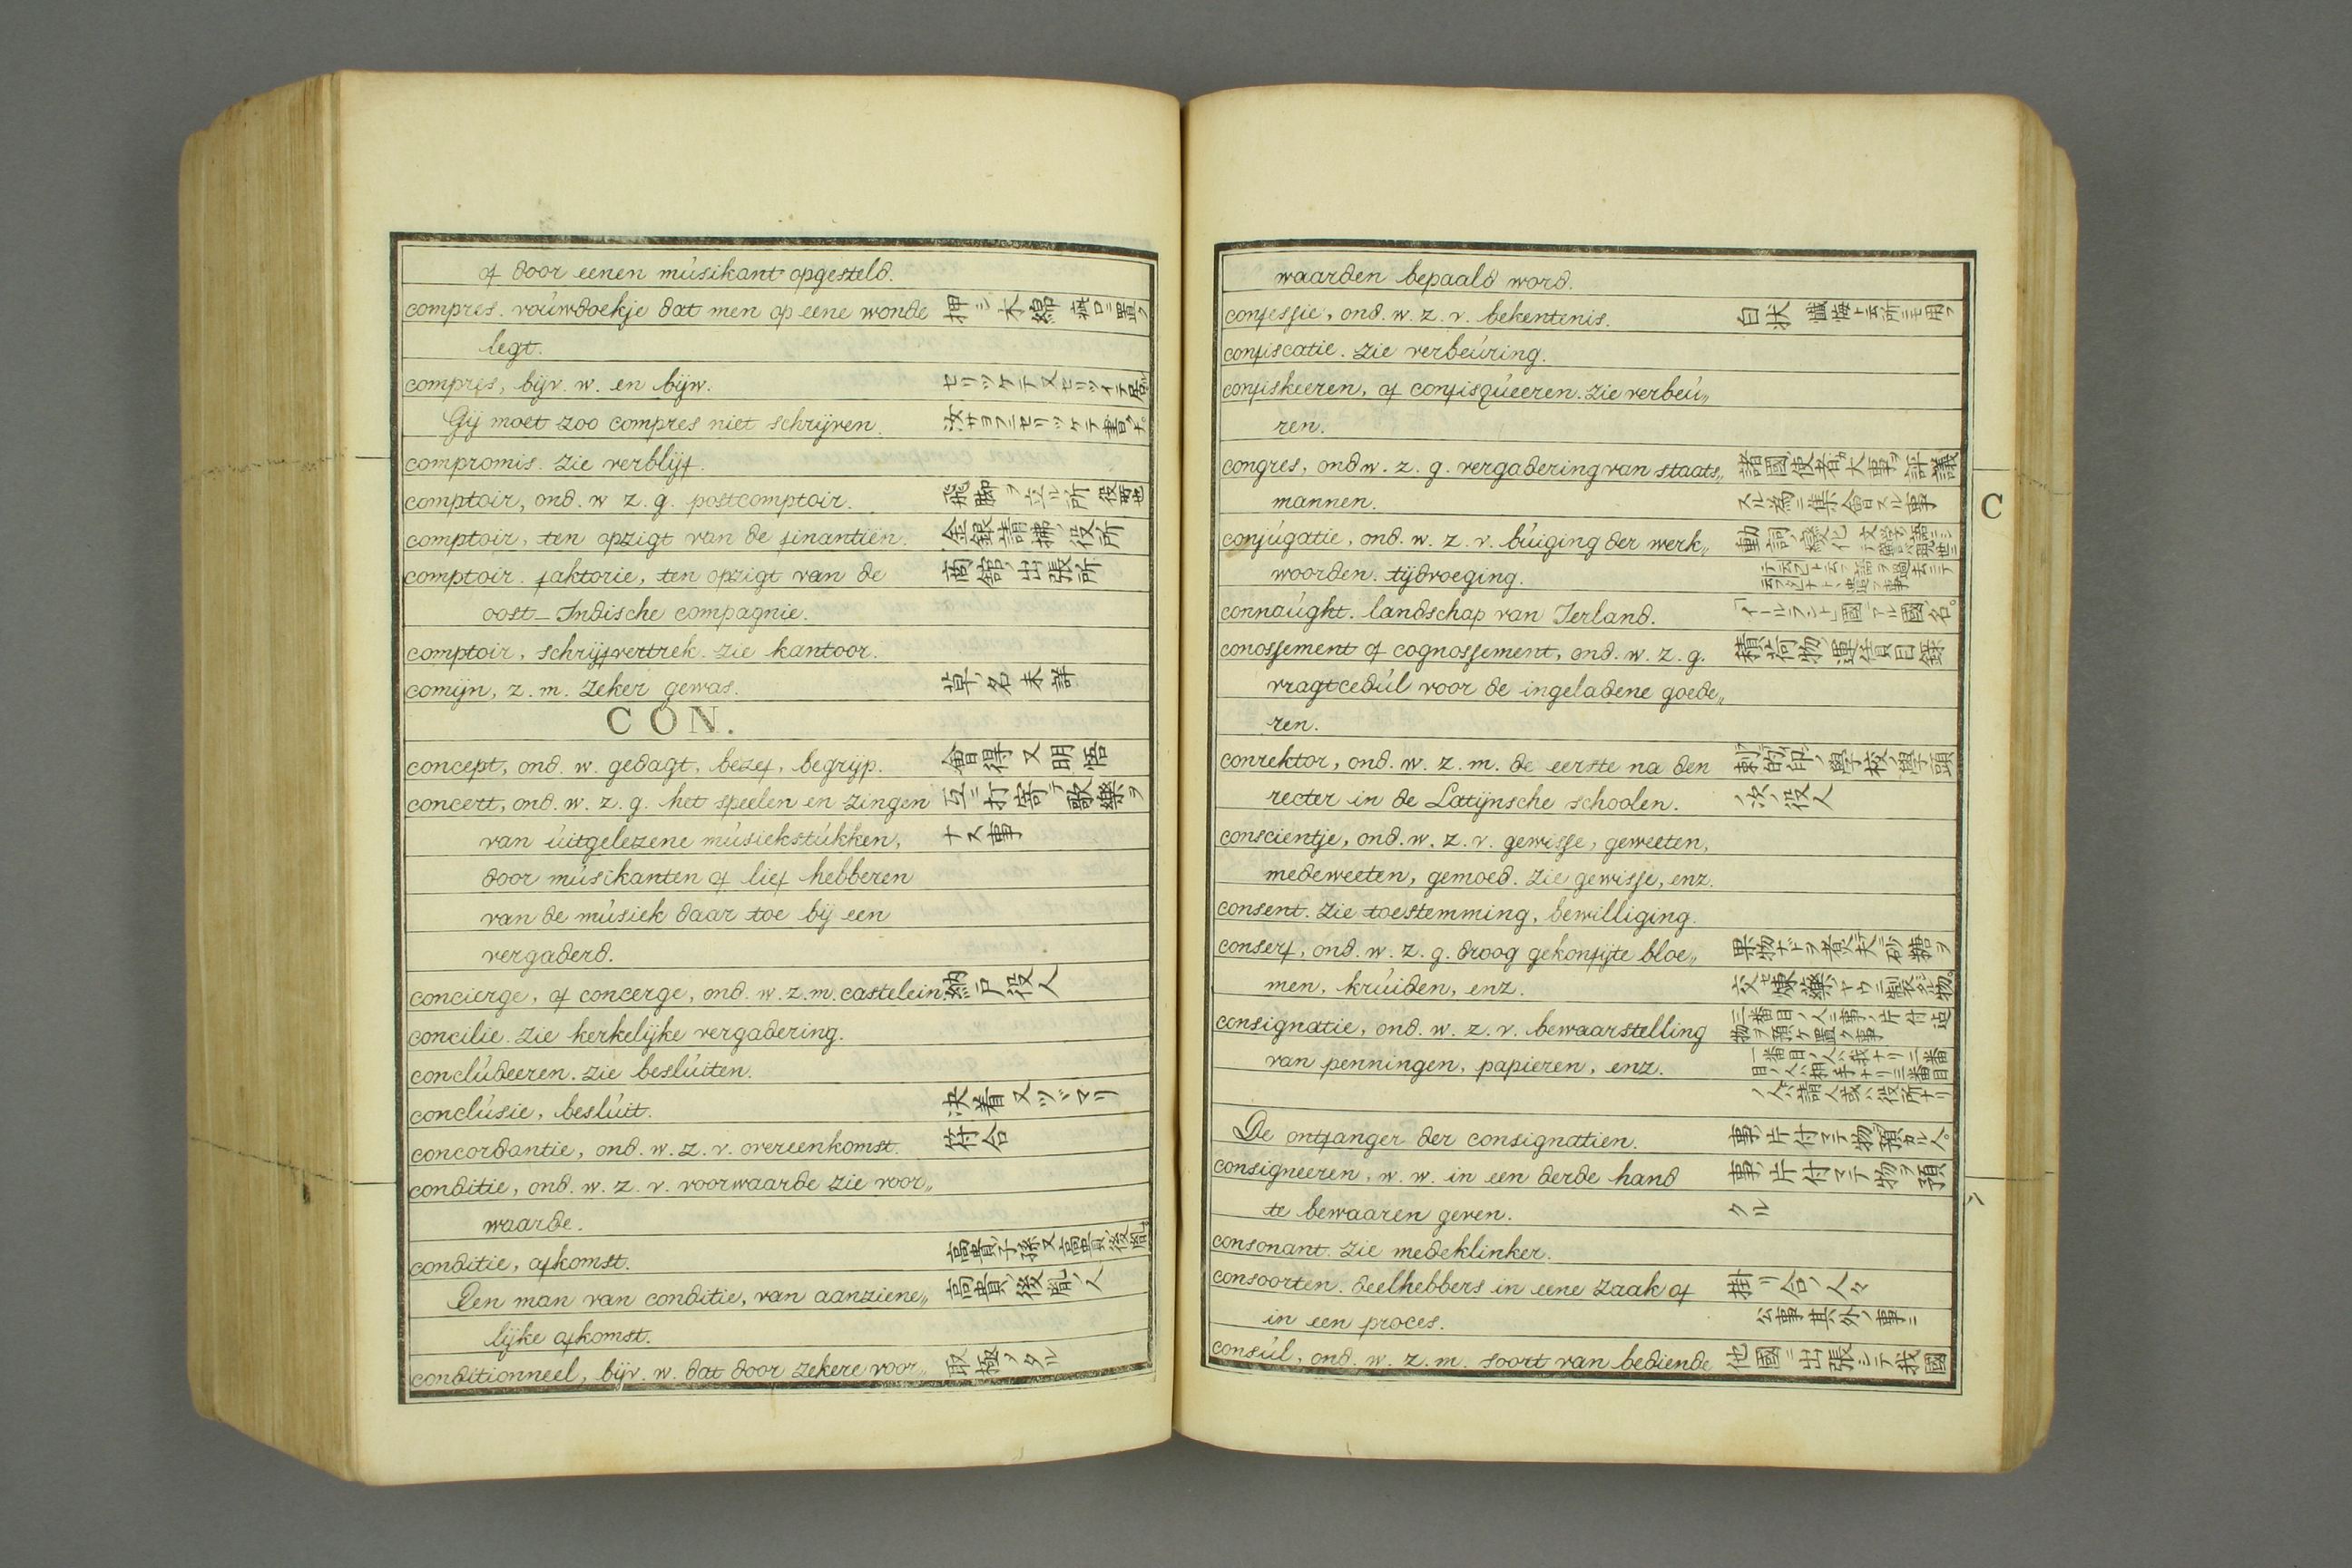 of door eenen músikant opgesteld.
compres. voúwdoekje dat men op eene wonde 押シ木綿 疵口ニ置ク
legt.
compres, bijv. w. en bijw. セリツケテ又セリツイテ居ル
Gij moet zoo compres niet schrijven. 汝サヨフニセリツケテ書クナ。
compromis. zie verblijf.
comptoir, ond. w z. g. postcomptoir. 飛脚ヲ立ル所
comptoir, ten opzigt van de finantiën. 金銀請拂ノ役所
comptoir. faktorie, ten opzigt van de 商館ノ出張所
oost-Indische compagnie.
comptoir, schrijfvertrek. zie kantoor.
comijn, z. m. zeker gewas. 草ノ名未詳
CON.
concept, ond. w. gedagt, bezef, begrijp. 會得又明悟
concert, ond. w. z. g. het speelen en zingen 互ニ打寄テ歌樂ヲ
van úitgelezene músiekstúkken, ナス事
door músikanten of lief hebberen
van de músiek daar toe bij een
vergaderd.
concierge, of concerge, ond. w. z. m. castelein. 納戸役人
concilie. zie kerkelijke vergadering.
conclúdeeren. zie beslúiten.
conclúsie, beslúit. 決着又ツヾマリ
concordantie, ond. w. z. v. overeenkomst. 符合
conditie, ond. w. z. v. voorwaarde zie voor„
waarde.
conditie, afkomst. 高貴ノ子孫又高貴ノ後胤
Een man van conditie, van aanziene„ 高貴ノ後胤ノ人
lijke afkomst.
conditionneel, bijv. w. dat door zekere voor„ 取極メタル
waarden bepaald word.
confessie, ond. w. z. v. bekentenis. 白状 懺悔ト云所ニモ用フ
confiscatie. zie verbeúring.
confiskeeren, of confisqúeeren. zie verbeú„
ren.
congres, ond w. z. g. vergadering van staats„ 諸國ノ使者ガ大事ヲ評議
mannen. スル為ニ集會スル事
C
conjúgatie, ond. w. z. v. búiging der werk„ 動詞ノ變化
woorden. tijdvoeging.
connaúght. landschap van Ierland. 「イールラント」國ノアル國ノ名。
conossement of cognossement, ond. w. z. g. 積荷物ノ運賃目録
vragtcedúl voor de ingeladene goede„
ren.
conrektor, ond. w. z. m. de eerste na den 剌的印ノ學校ノ學頭
recter in de Latijnsche schoolen. ノ次ノ役人
conscientje, ond. w. z. v. gewisse, geweeten,
medeweeten, gemoed. zie gewisse, enz.
consent. zie toestemming, bewilliging.
conserf, ond. w. z. g. droog gekonfijte bloe„ 果物ナドヲ煮夫ニ砂糖ヲ
men, krúiden, enz. 交セ煉藥ノヤウニ製シタル物。
consignatie, ond. w. z. v. bewaarstelling 三番目ノ人ニ事ノ片付迠
物ヲ預ケ置ク事
van penningen, papieren, enz. 一番目ノ人ハ我ナリ二番
目ノ人ハ相手ナリ三番目
ノ人ハ請人或ハ役所ナリ
De ontfanger der consignatien. 事ノ片付マテ物ヲ預カル人。
consigneeren, w. w. in een derde hand 事ノ片付マテ物ヲ預
te bewaaren geven. クル
consonant. zie medeklinker.
consoorten. deelhebbers in eene zaak of 掛リ合ノ人々
in een proces. 公事其外ノ事ニ
consúl, ond. w. z. m. soort van bediende 他國ニ出張シテ我國